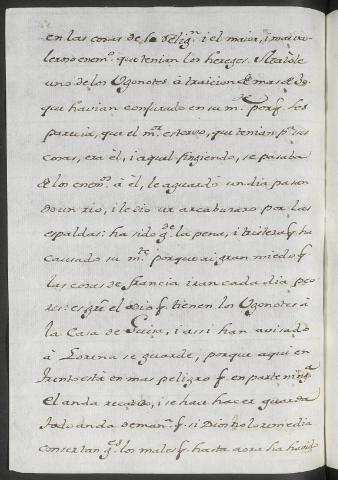 en las cosas de la Relig.n i el maior, i mas va-
leroso enem.o que tenian los hereges. Matóle
uno de los Ugonotes à traicion de mas de dos
que havian conjurado en su m.te porq.e les
parecia, que el m.or estorvo, que tenian p.a sus
cosas, era el, i aquel fingiendo, se pasaba
de los enem.os à él, le aguardó un dia pasan
do un rio, i le dio un arcabuzazo por las
espaldas: ha sido g.de la pena, i tristeza q.e ha
causado su m.te porque ai gran miedo q.
las cosas de francia iran cada dia peo-
res: es gr.e el odio q. tienen los Ugonotes à
la Casa de Guisa, i assi han avisado
à Lorena se guarde, porque aqui en
Trento està en mas peligro q. en parte ning.a
el anda recatado, i se hace hacer guarda
todo anda de man.a q. si Dios no lo remedia
conciertan g.des los males q. hasta aora ha havido